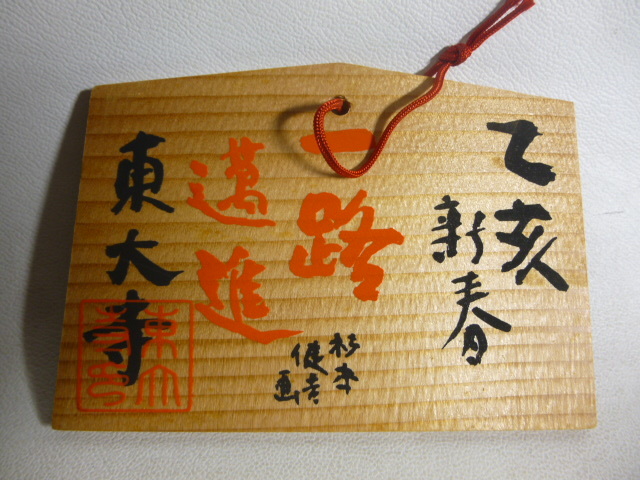 乙亥
新春
一路
邁進
杉本
健吉
画
東大寺